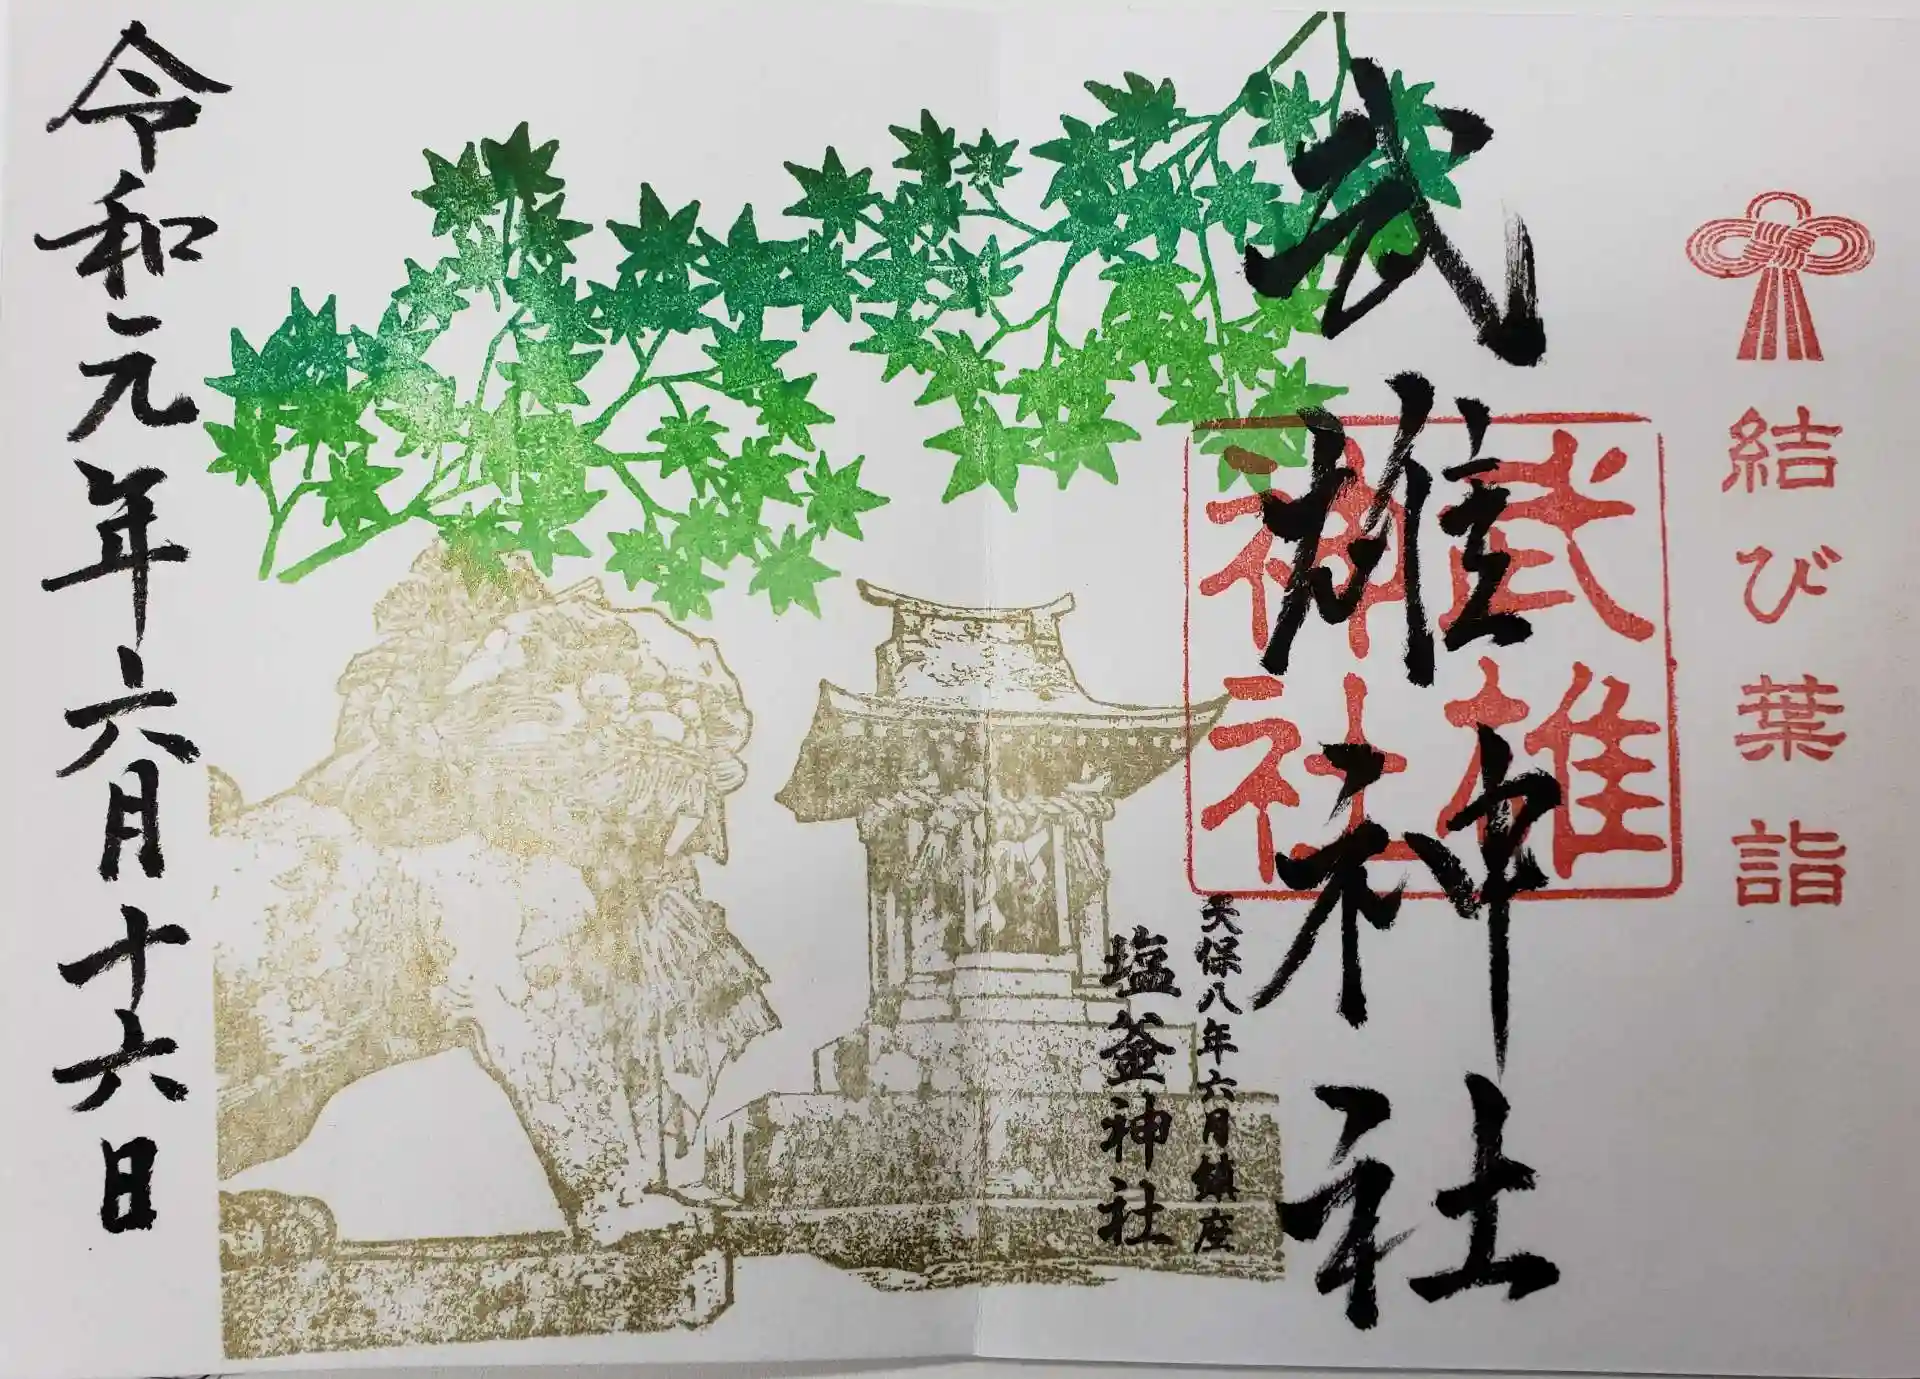 結び葉詣
武雄神社
武雄
神社
天保八年六月鎮座
塩釜神社
令和元年六月十六日